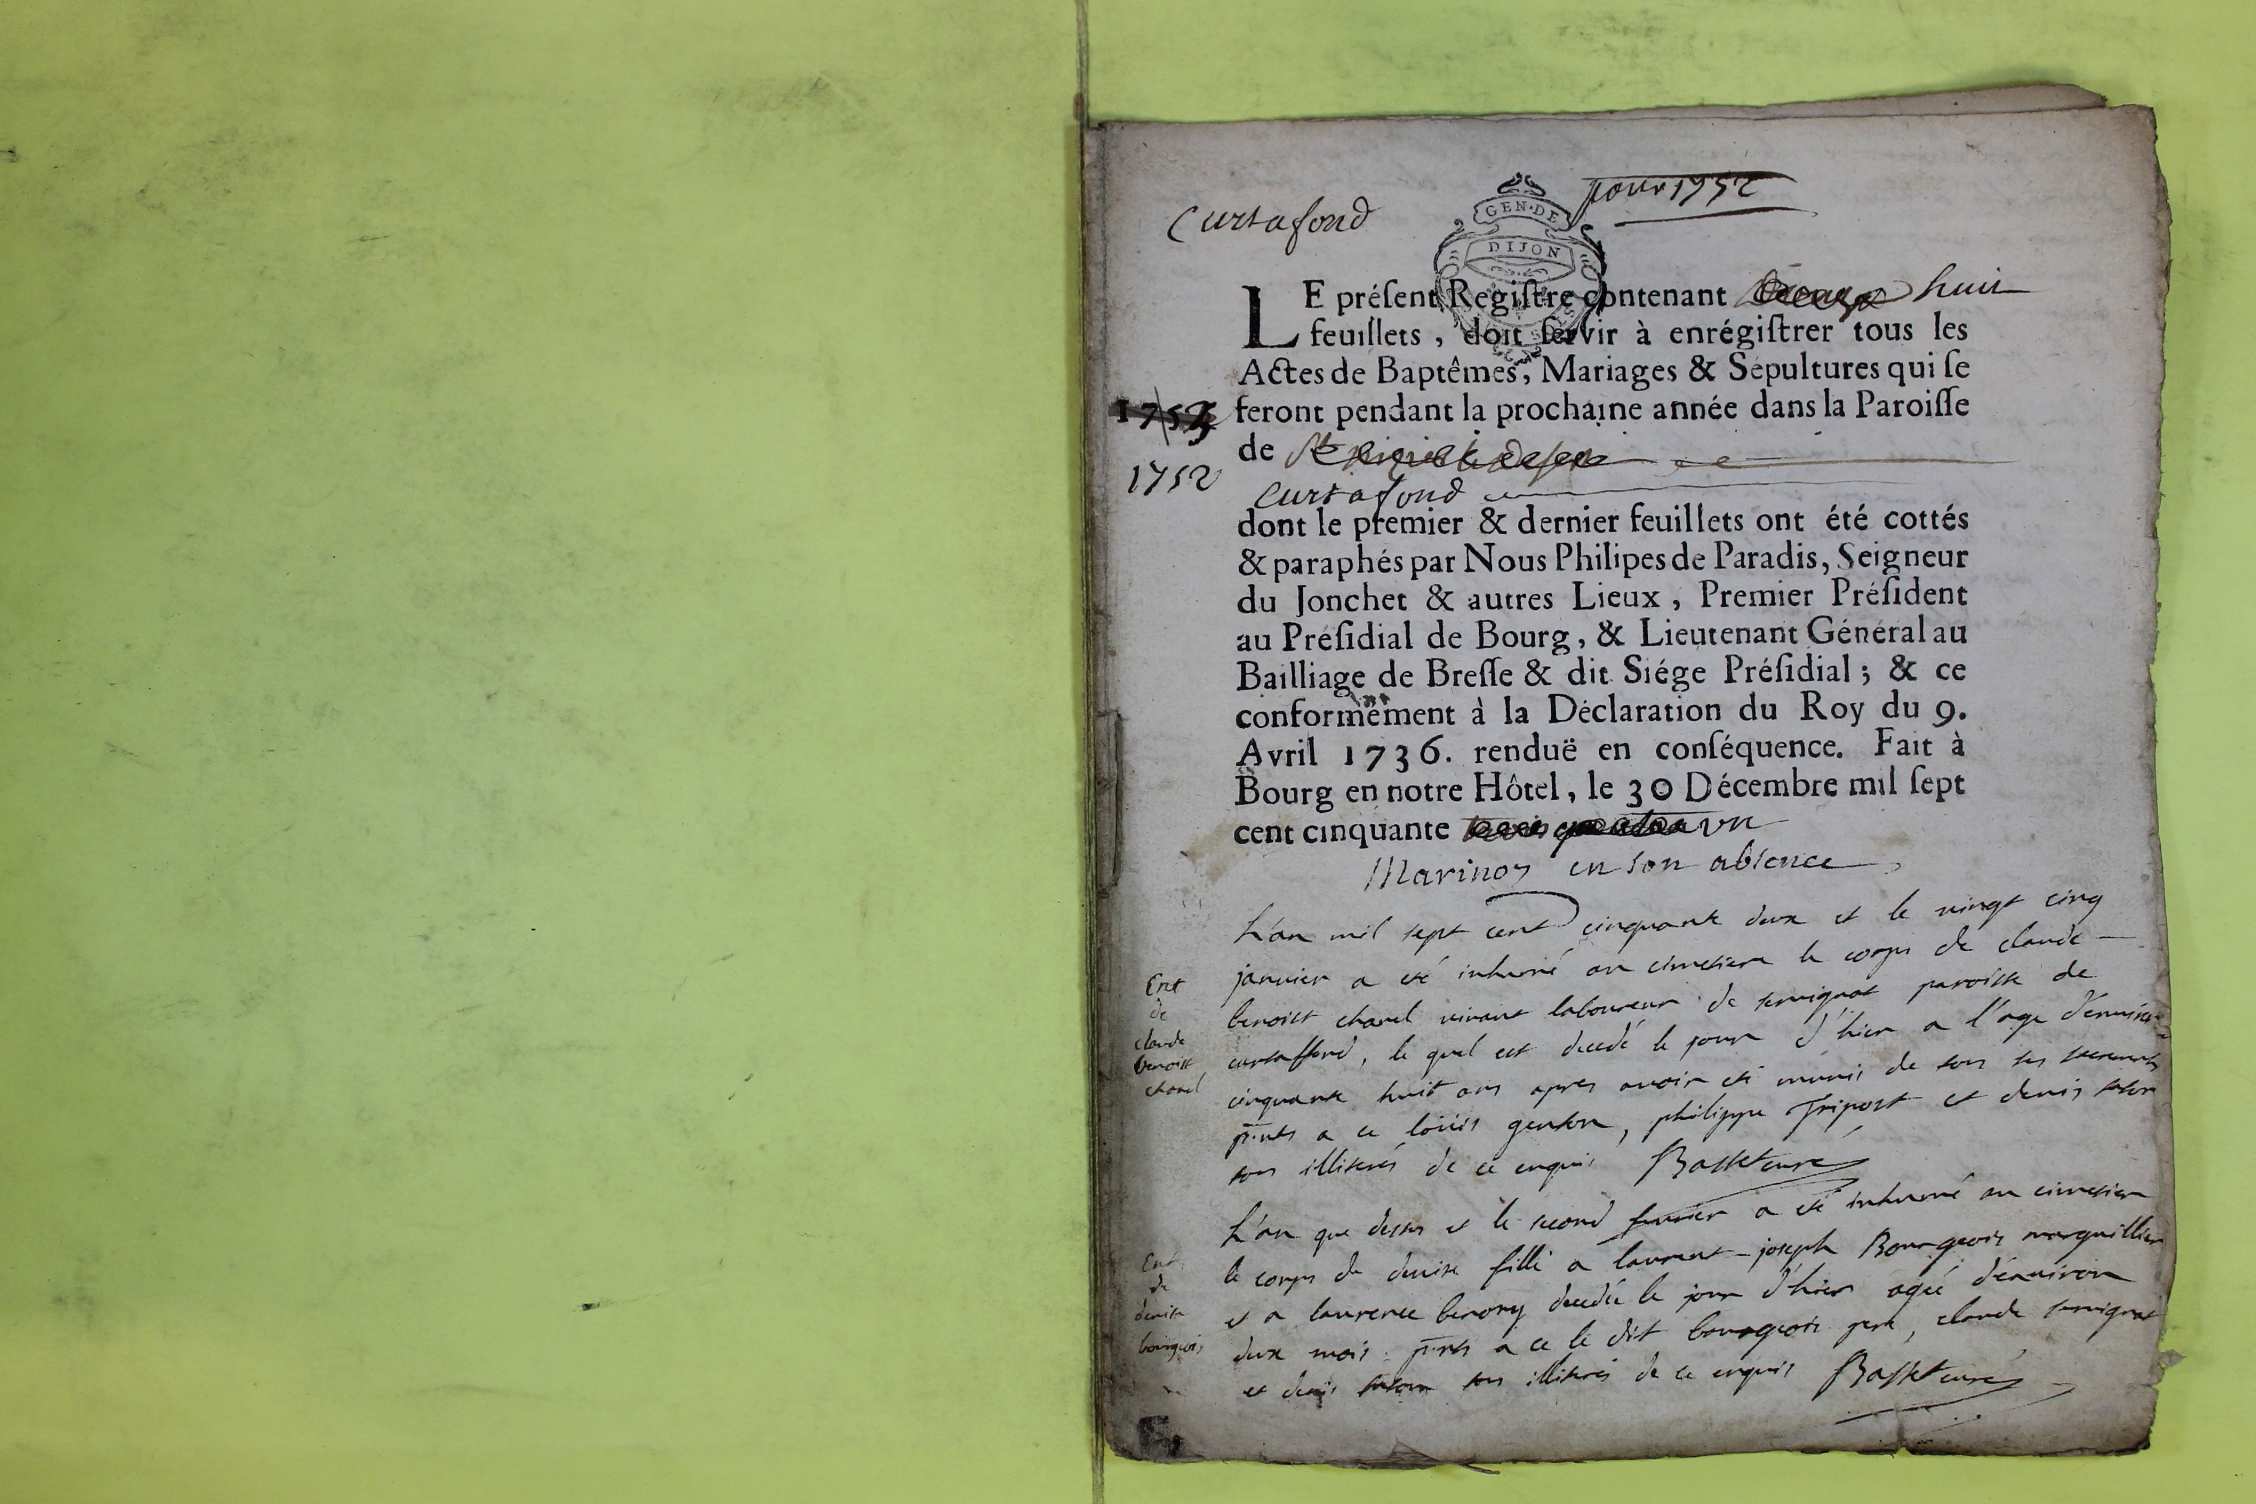 pour 1752
Curtafond
GEN·DE
DIJON
LE préſent Regiſtre contenant huit
feuillets, doit ſervir à enrégiſtrer tous les
Actes de Baptêmes, Mariages & Sépultures qui ſe
1753 feront pendant la prochaine année dans la Paroiſſe
de
1752
Curtafond
dont le premier & dernier feuillets ont été cottés
& paraphés par Nous Philipes de Paradis, Seigneur
du Jonchet & autres Lieux, Premier Préſident
au Préſidial de Bourg, & Lieutenant Général au
Bailliage de Breſſe & dit Siége Préſidial; & ce
conformément à la Déclaration du Roy du 9.
Avril 1736. renduë en conſéquence. Fait à
Bourg en notre Hôtel, le 30 Décembre mil ſept
cent cinquante un
en son absence
L'an mil sept cent cinquante deux et le vingt cinq
janvier a eté inhumé au cimetiere le corps de claude
benoist chavel vivant laboureur de servignat paroisse de
curtaffond, le quel est decedé le jour d'hier a l'age d'environ
cinquante huit ans apres avoir eté munis de tous ses sacrements
pnts a ce loüis genton, philippe Tripost et denis
tous illiterés de ce enquis Basset curé
Ent
de
claude
benoist
chavel
L'an que dessus et le second fevrier a eté inhumé au cimetiere
le corps de denise fille a laurent-joseph Bourgeois marguillier
et a laurence benony decedée le jour d'hier agée d'environ
deux mois. pnts a ce le dit bourgeois pere, claude servignat
et denis tous illiterés de ce enquis Basset curé
Ent
de
denise
bourgeois